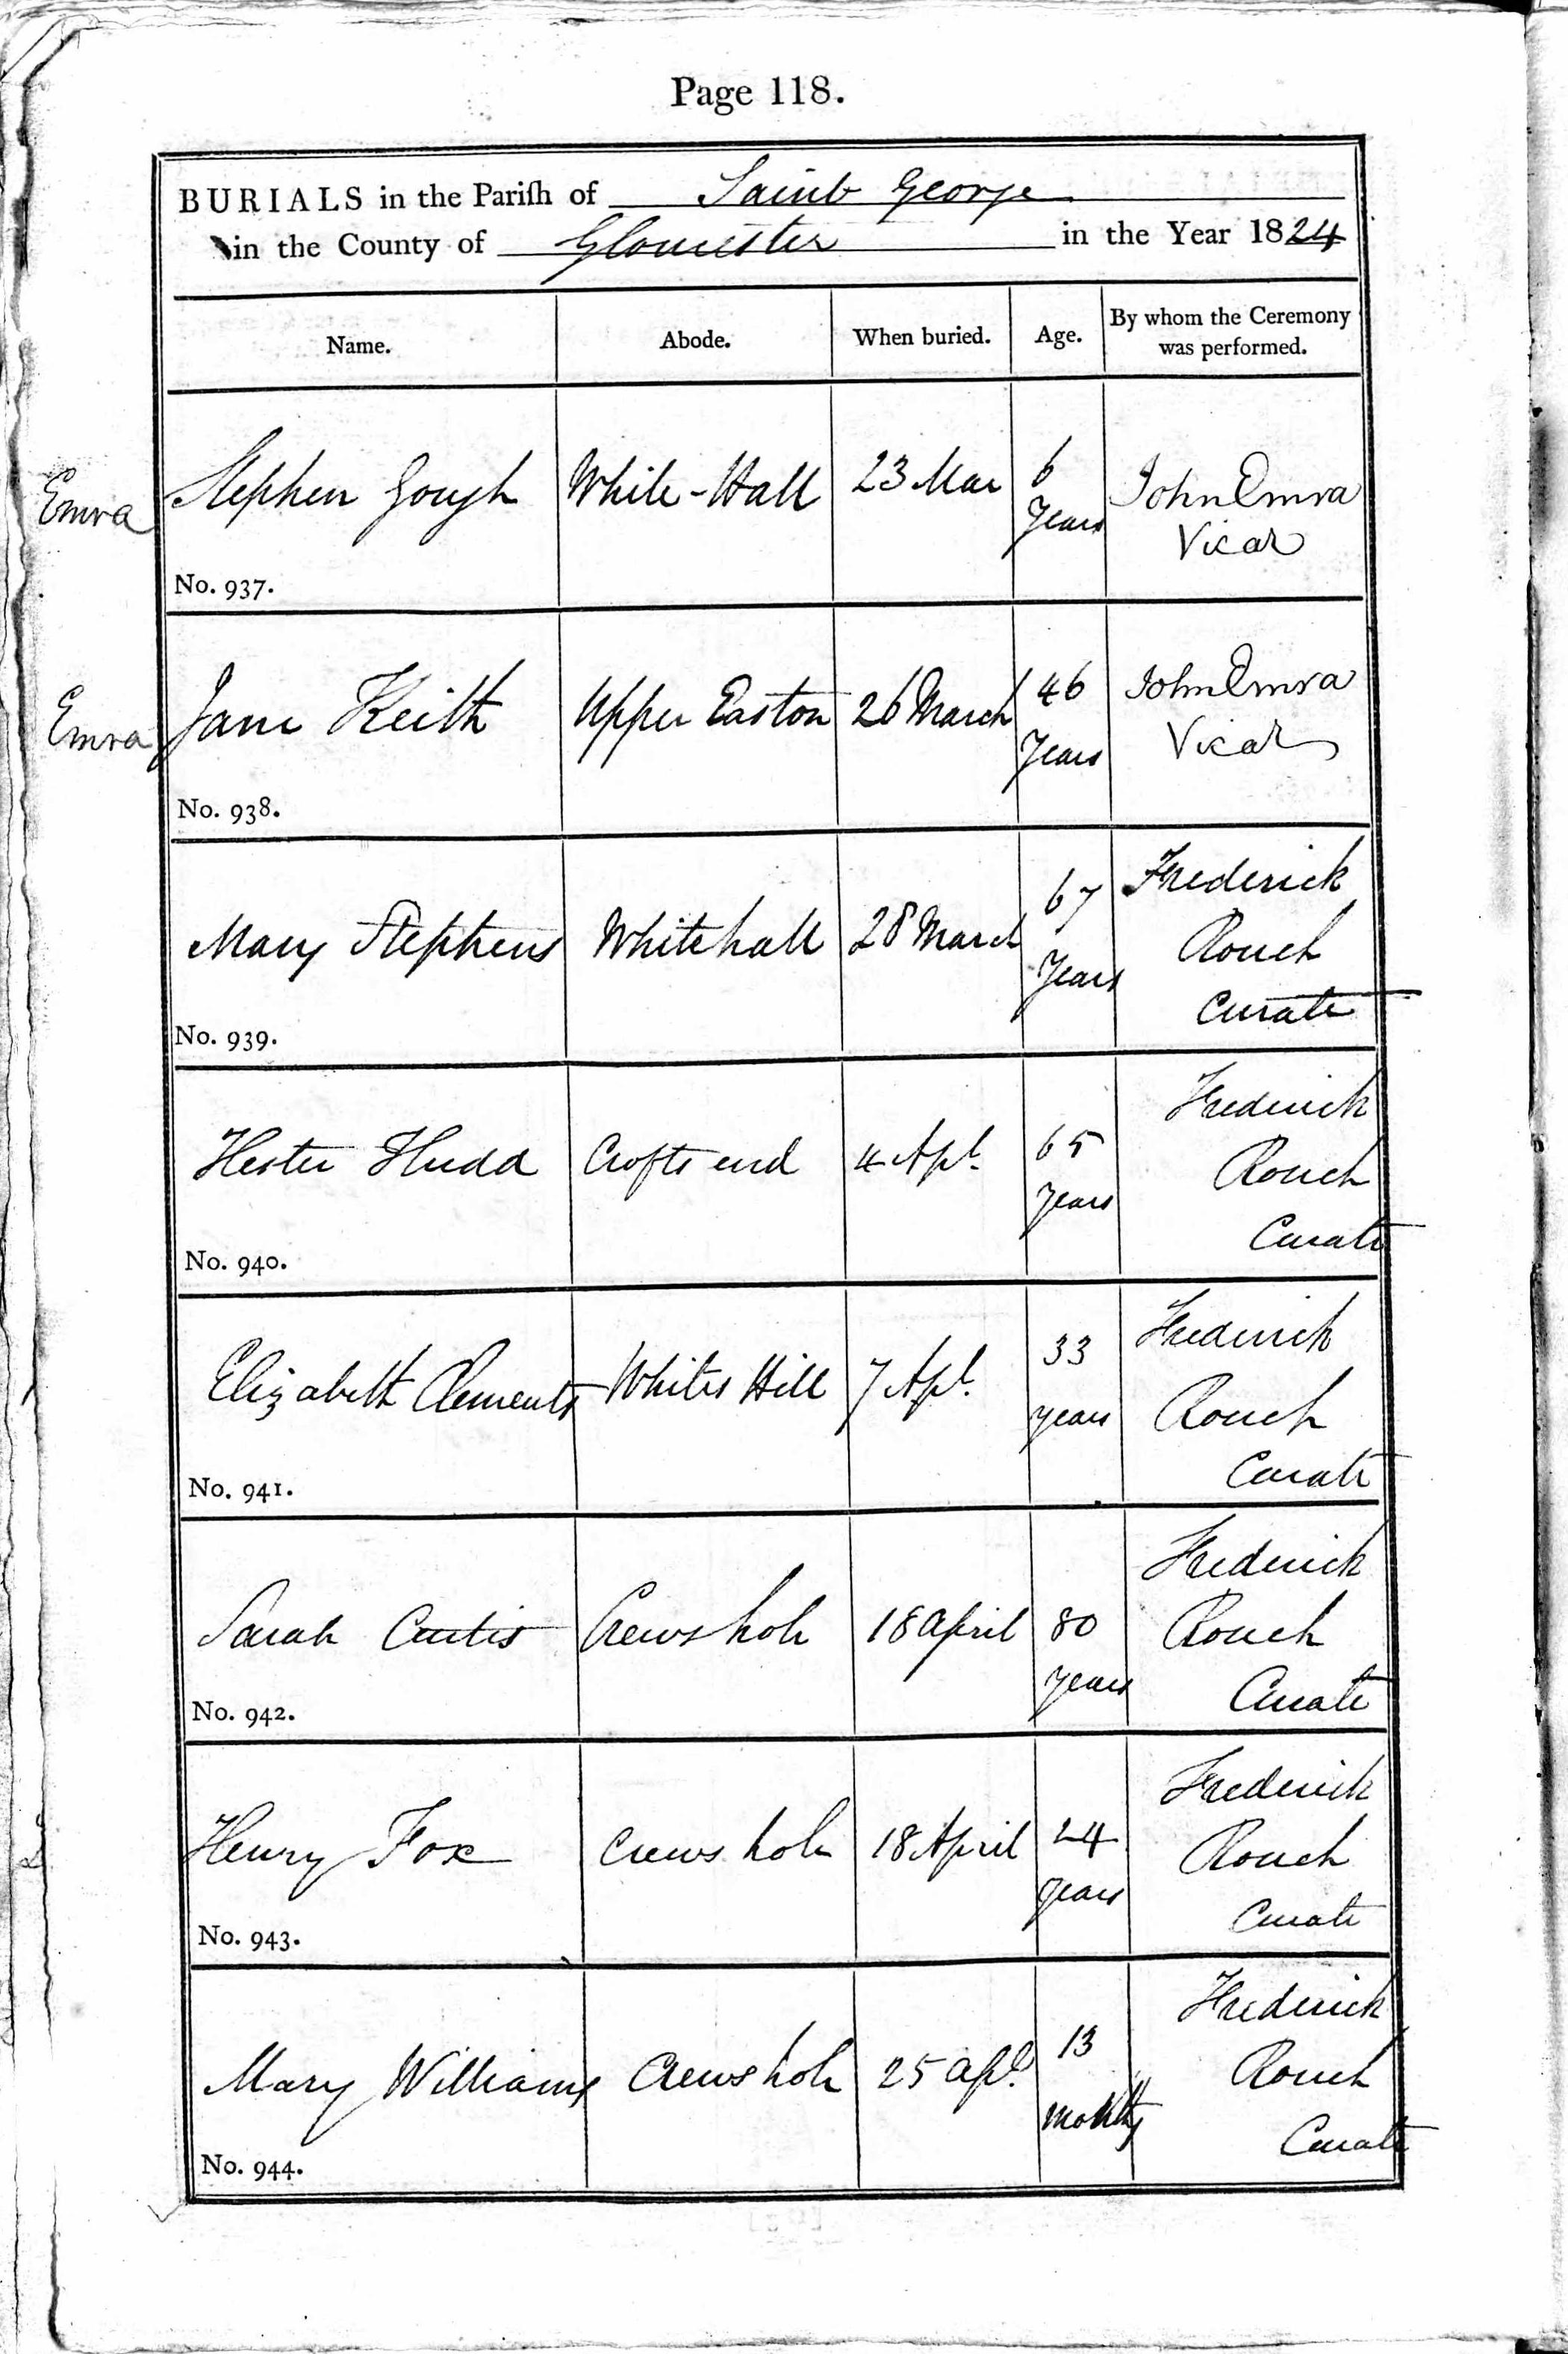 Page 118.
BURIALS in the Parish of Saint George
in the County of Gloucester in the Year 1824
Name. Abode. When buried. Age. By whom the Ceremony was performed.
Emra
Stephen Gough White-Hall 23 Mar 6 Years John Emra Vicar
No. 937.
Emra
Jane Keith Upper Easton 26 March 46 Years John Emra Vicar
No. 938.
Mary Stephens Whitehall 28 March 67 Years Frederick Rouch Curate
No. 939.
Hester Hudd Crofts end 4 Apl. 65 years Frederick Rouch Curate
No. 940.
Elizabeth Clements Whites Hill 7 Apl. 33 years Frederick Rouch Curate
No. 941.
Sarah Curtis Crews hole 18 April 80 years Frederick Rouch Curate
No. 942.
Henry Fox Crews hole 18 April 24 years Frederick Rouch Curate
No. 943.
Mary Williams Crews hole 25 Apl. 13 months Frederick Rouch Curate
No. 944.